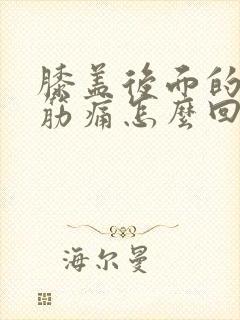 膝盖後面的
筋痛怎麼回
海尔曼